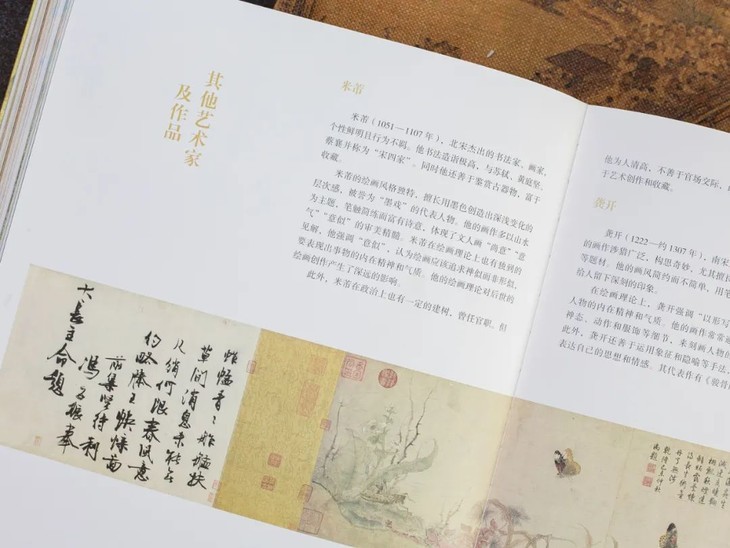 其他艺术家
及作品
米芾
米芾（1051—1107 年），北宋杰出的书法家、画家，
个性鲜明且行为不羁。他书法造诣极高，与苏轼、黄庭坚、
蔡襄并称为“宋四家”。同时他还善于鉴赏古器物，富于
收藏。
米芾的绘画风格独特，擅长用墨色创造出深浅变化的
层次感，被誉为“墨戏”的代表人物。他的画作多以山水
为主题，笔触简练而富有诗意，体现了文人画“尚意”“意
气”“意似”的审美精髓。米芾在绘画理论上也有独到的
见解，他强调“意似”，认为绘画应该追求神似而非形似，
要表现出事物的内在精神和气质。他的绘画理论对后世的
绘画创作产生了深远的影响。
此外，米芾在政治上也有一定的建树，曾任官职。但
他为人清高，不善于官场交际，
于艺术创作和收藏。
龚开
龚开（1222—约 1307 年），南宋
的画作涉猎广泛，构思奇妙，尤其擅长
等题材。他的画风简约而不简单，用笔
给人留下深刻的印象。
在绘画理论上，龚开强调“以形写
人物的内在精神和气质。他的画作常常通
神态、动作和服饰等细节，来刻画人物的
此外，龚开还善于运用象征和隐喻等手法，
表达自己的思想和情感。其代表作有《骏骨
草間消息未能
何限春風意
約略滕王蛺蝶圖
前集賢待制
馮子振奉
大長主命題